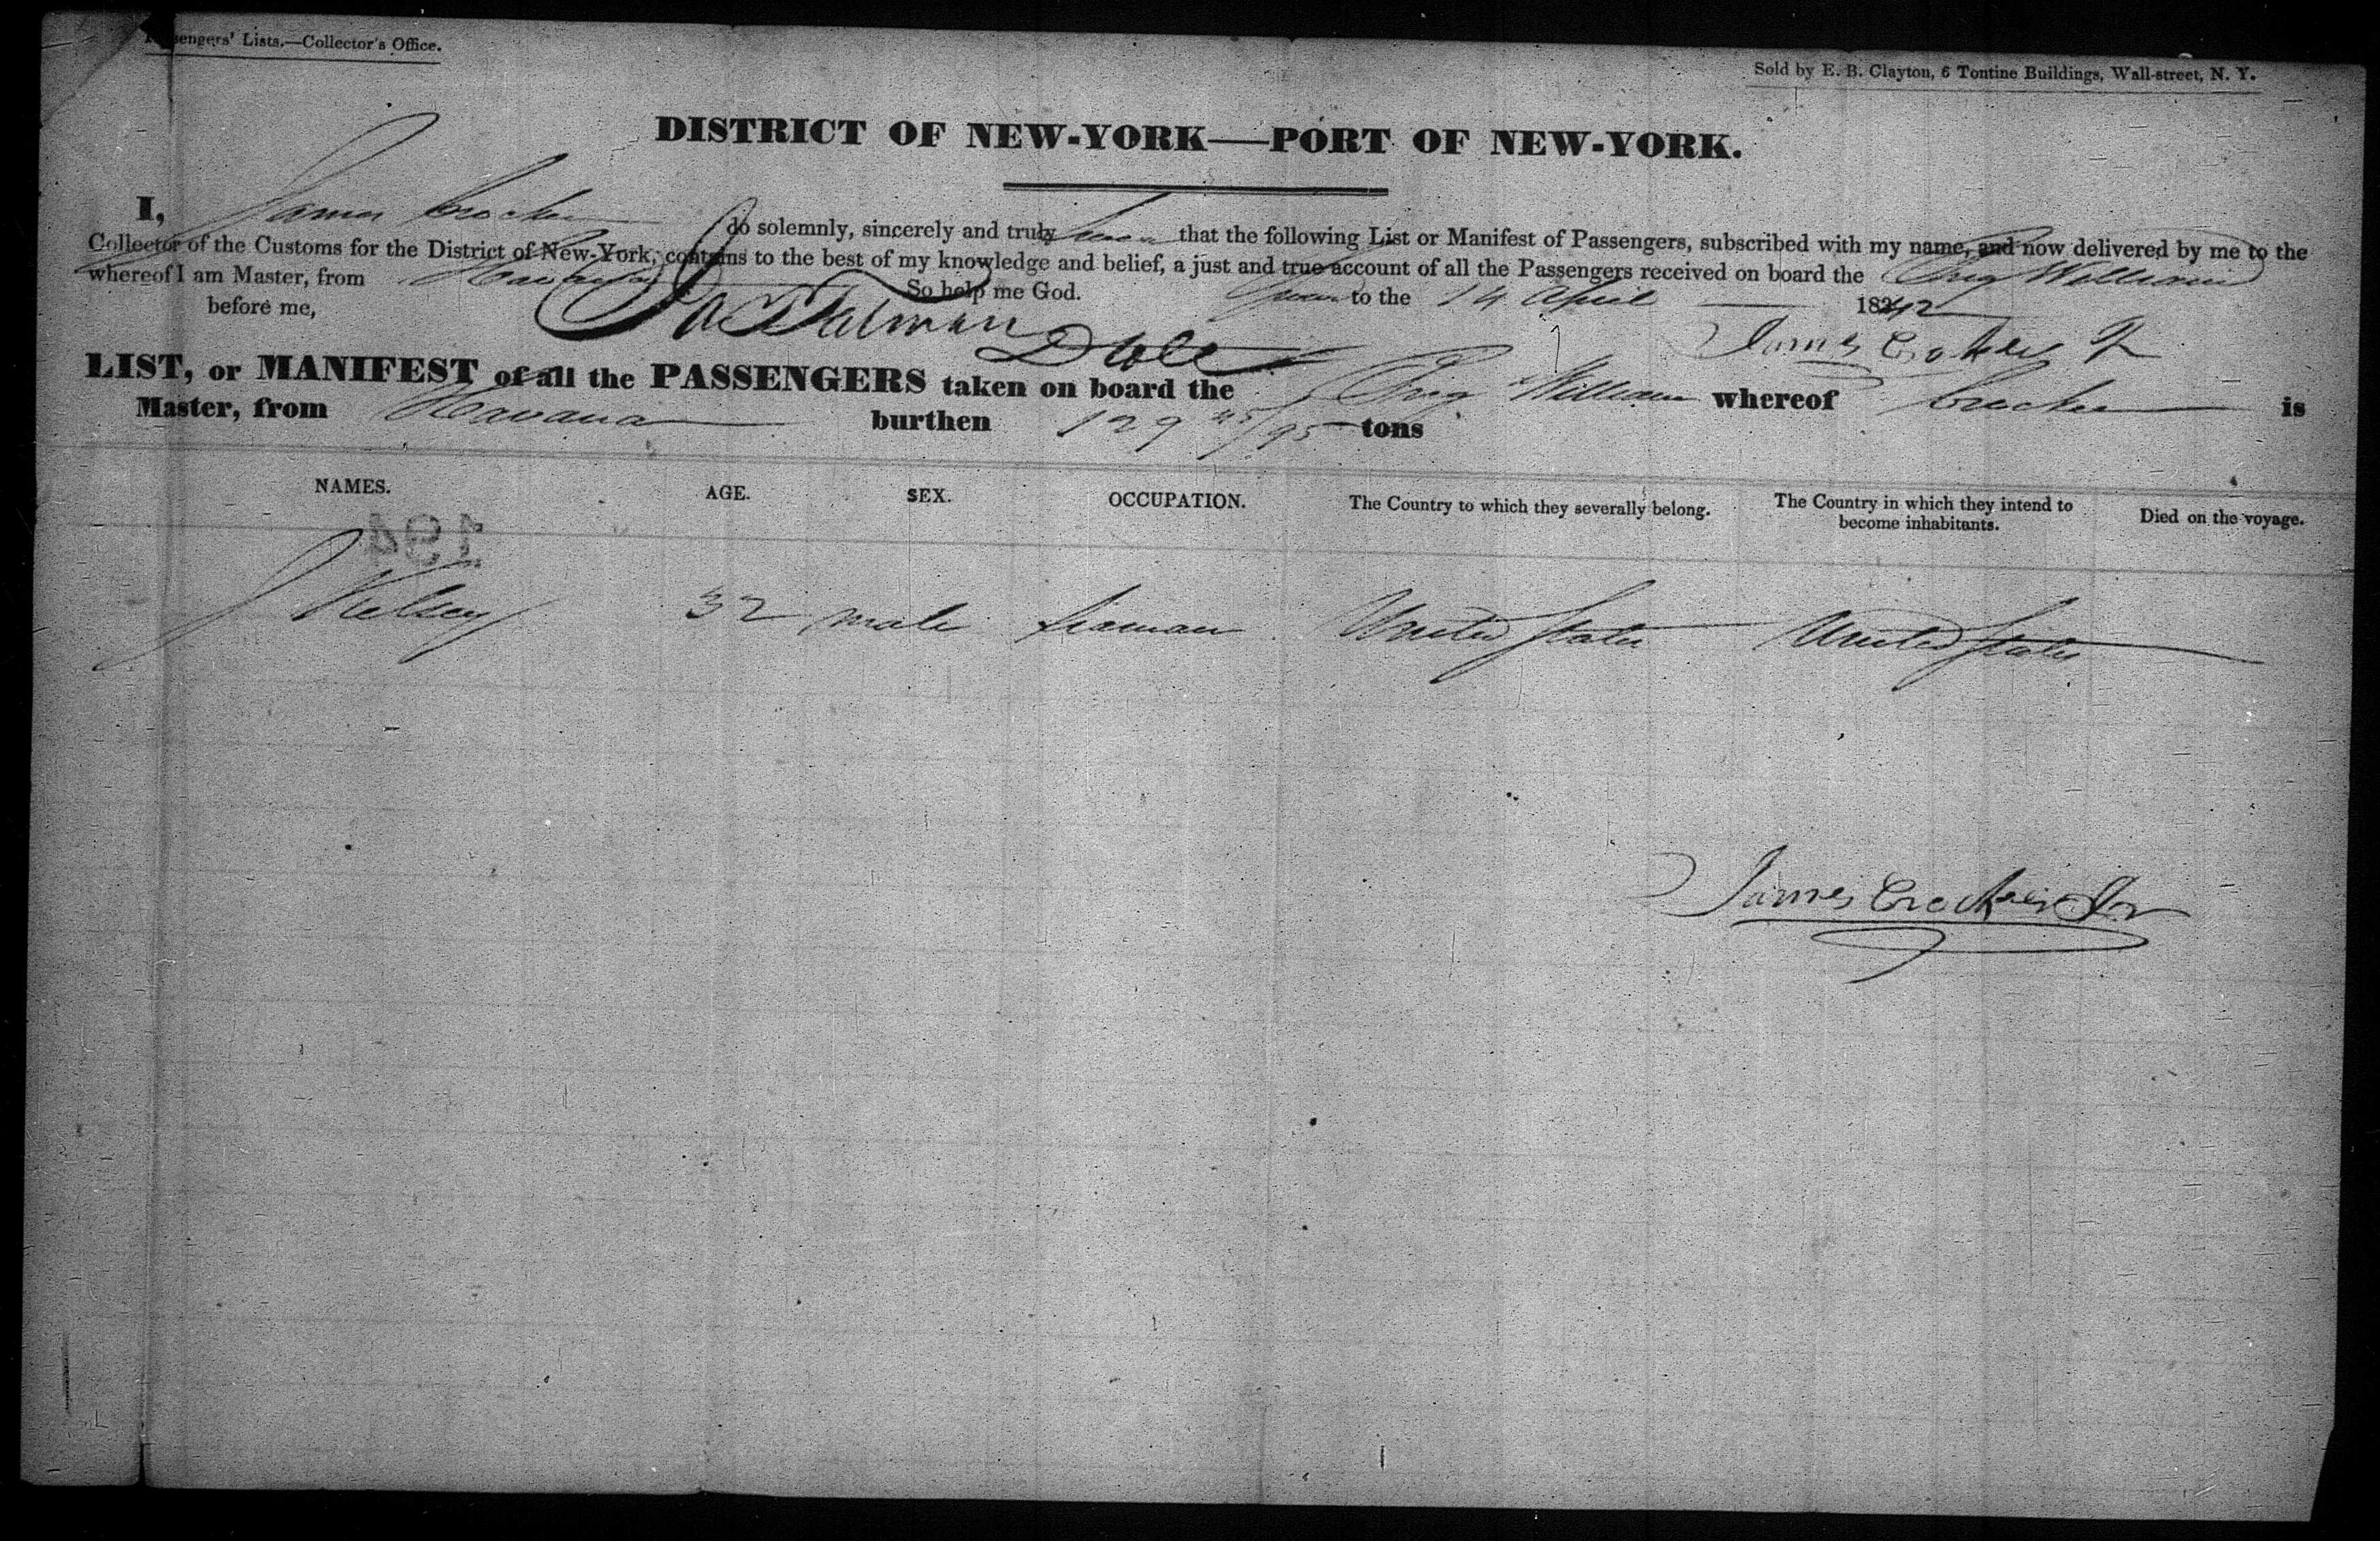 Passengers' Lists.—Collector's Office.
Sold by E. B. Clayton, 6 Tontine Buildings, Wall-street, N. Y.
DISTRICT OF NEW-YORK—PORT OF NEW-YORK.
I, James Crocker do solemnly, sincerely and truly Swear that the following List or Manifest of Passengers, subscribed with my name, and now delivered by me to the
Collector of the Customs for the District of New-York, contains to the best of my knowledge and belief, a just and true account of all the Passengers received on board the Brig William
whereof I am Master, from Havana So help me God.
Sworn to the 14 April 1842
before me,
Talman
James Crocker Jr
LIST, or MANIFEST of all the PASSENGERS taken on board the Brig William whereof Crocker is
Master, from Havana burthen 129 45/95 tons
NAMES. AGE. SEX. OCCUPATION. The Country to which they severally belong. The Country in which they intend to become inhabitants. Died on the voyage.
194
J Kelsey 32 male Seaman United States United States
James Crocker Jr